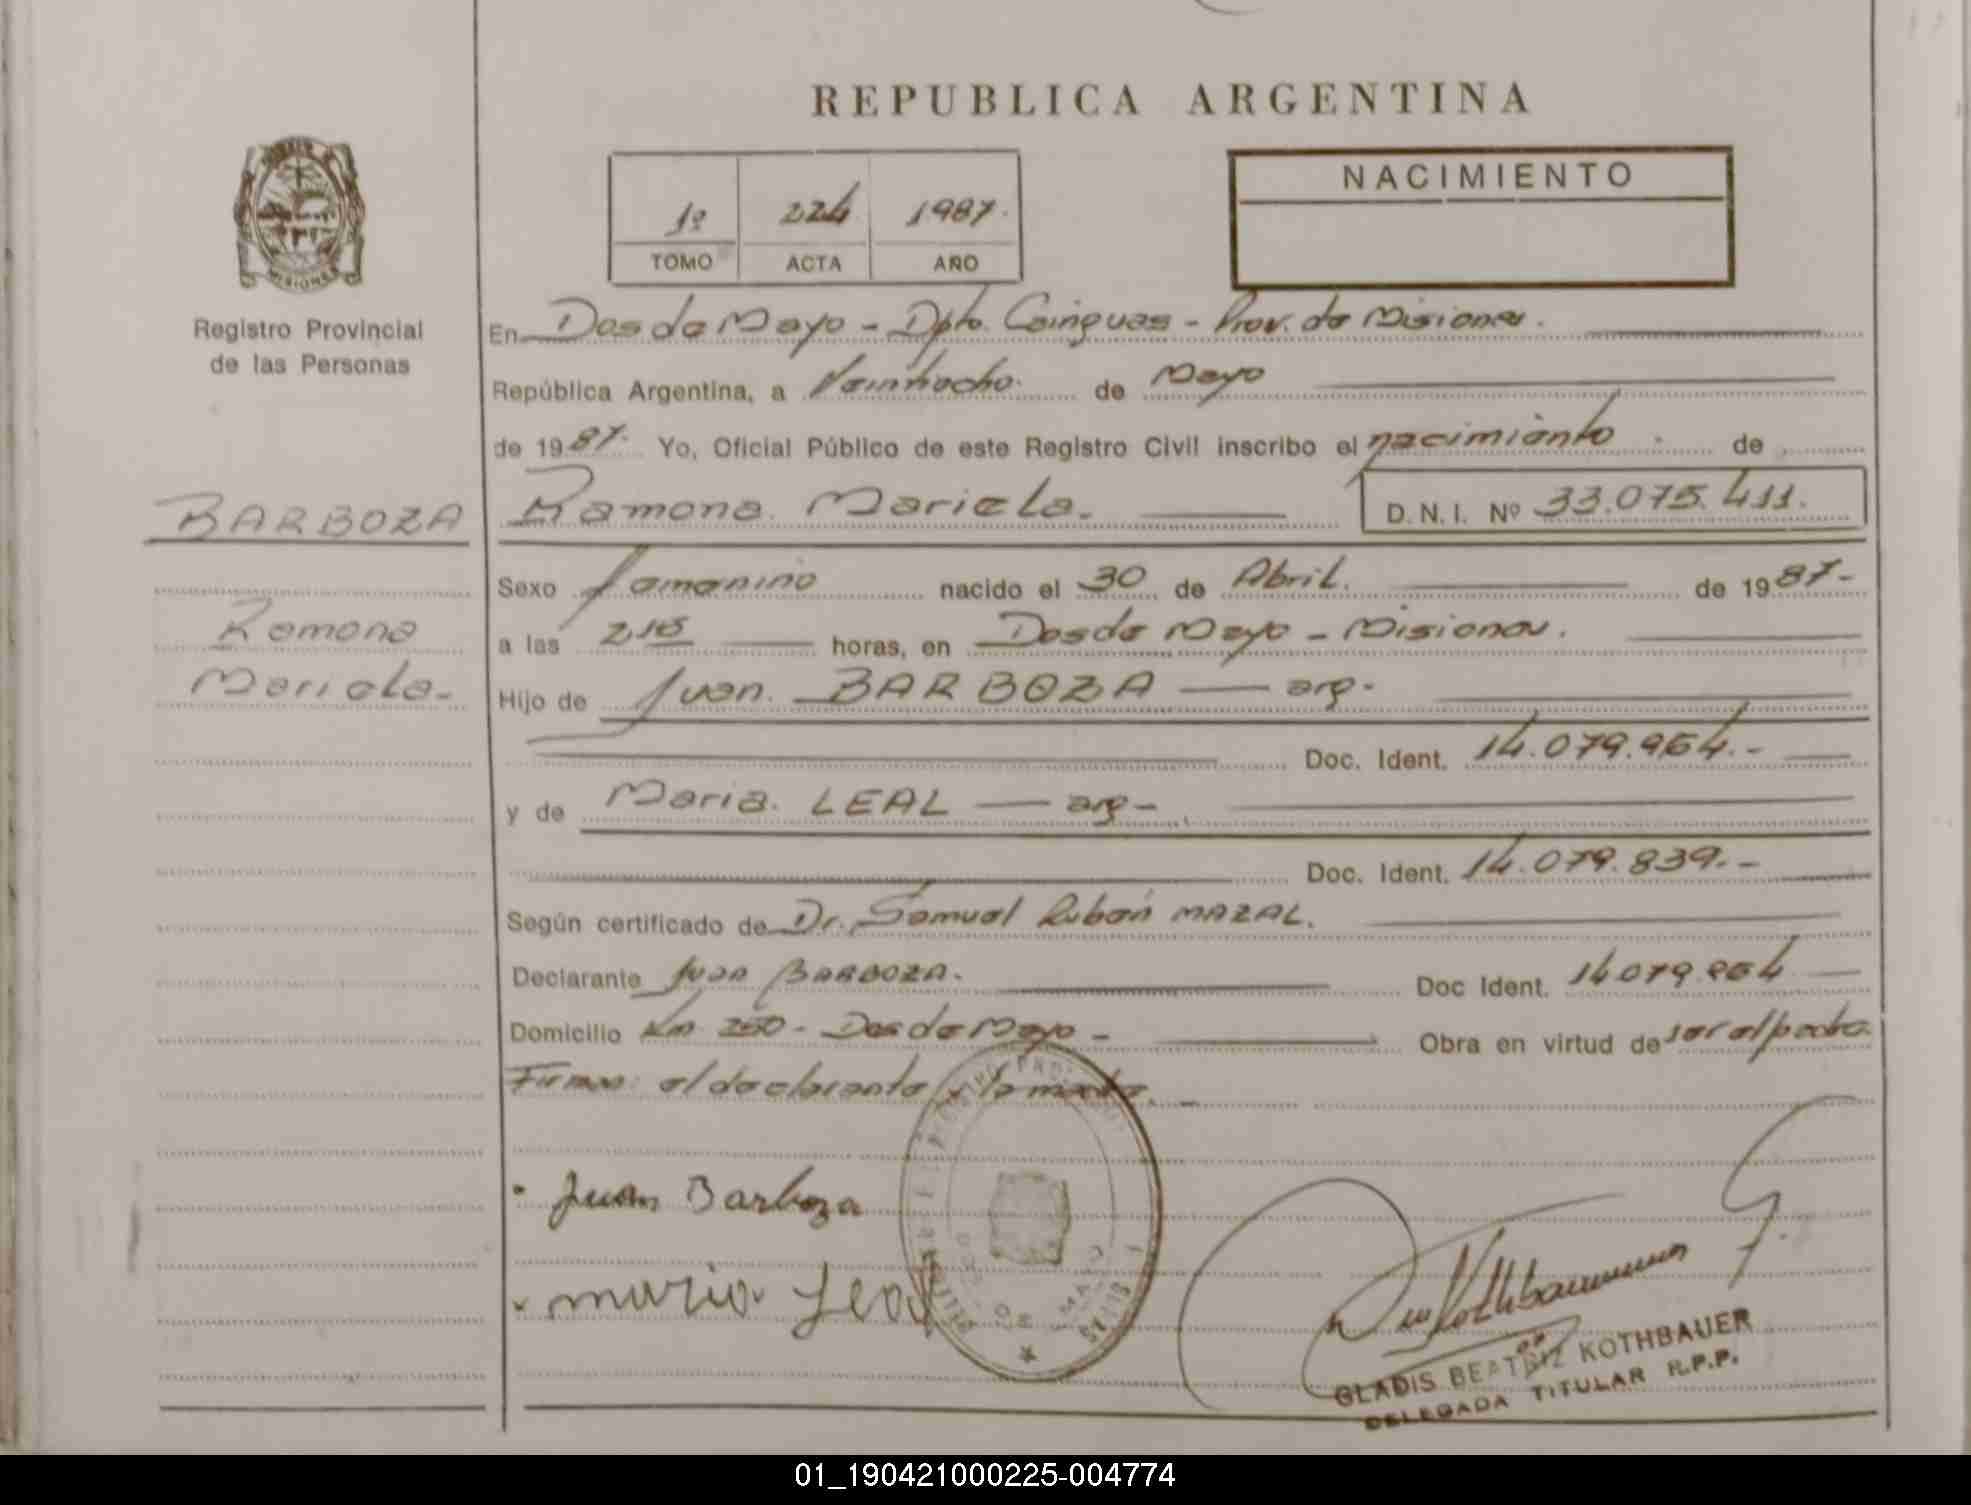 REPUBLICA ARGENTINA
NACIMIENTO
1º 224 1987.
TOMO ACTA AÑO
MISIONES
Registro Provincial
de las Personas
En Dos de Mayo - Dpto. Cainguas - Prov. de Misiones.
República Argentina, a Veintiocho. de Mayo
de 1987. Yo, Oficial Público de este Registro Civil inscribo el nacimiento de
BARBOZA
Ramona Mariela.
D.N.I. Nº 33.075.411.
Sexo femenino nacido el 30 de Abril. de 1987-
Ramona
Mariela-
a las 2,15 horas, en Dos de Mayo - Misiones.
Hijo de Juan. BARBOZA — arg-
Doc. Ident. 14.079.964.-
y de Maria. LEAL — arg-
Doc. Ident. 14.079.839.-
Según certificado de Dr. Samuel Rubén MAZAL.
Declarante Juan BARBOZA. Doc Ident. 14079.964
Domicilio Km 250 - Dos de Mayo - Obra en virtud de ser el padre.
Firman: el declarante y la madre. -
Juan Barboza
maria Leal
DOS DE MAYO
Kothbauer
GLADIS BEATRIZ KOTHBAUER
DELEGADA TITULAR R.P.P.
01_190421000225-004774